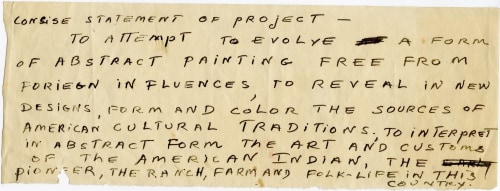 CONCISE STATEMENT OF PROJECT —
TO ATTEMPT TO EVOLVE A FORM
OF ABSTRACT PAINTING FREE FROM
FORIEGN INFLUENCES, TO REVEAL IN NEW
DESIGNS, FORM AND COLOR THE SOURCES OF
AMERICAN CULTURAL TRADITIONS. TO INTERPRET
IN ABSTRACT FORM THE ART AND CUSTOMS
OF THE AMERICAN INDIAN, THE
PIONEER, THE RANCH, FARM AND FOLK-LIFE IN THIS
COUNTRY.